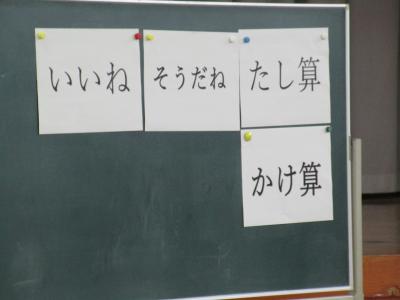 いいね
そうだね
たし算
かけ算